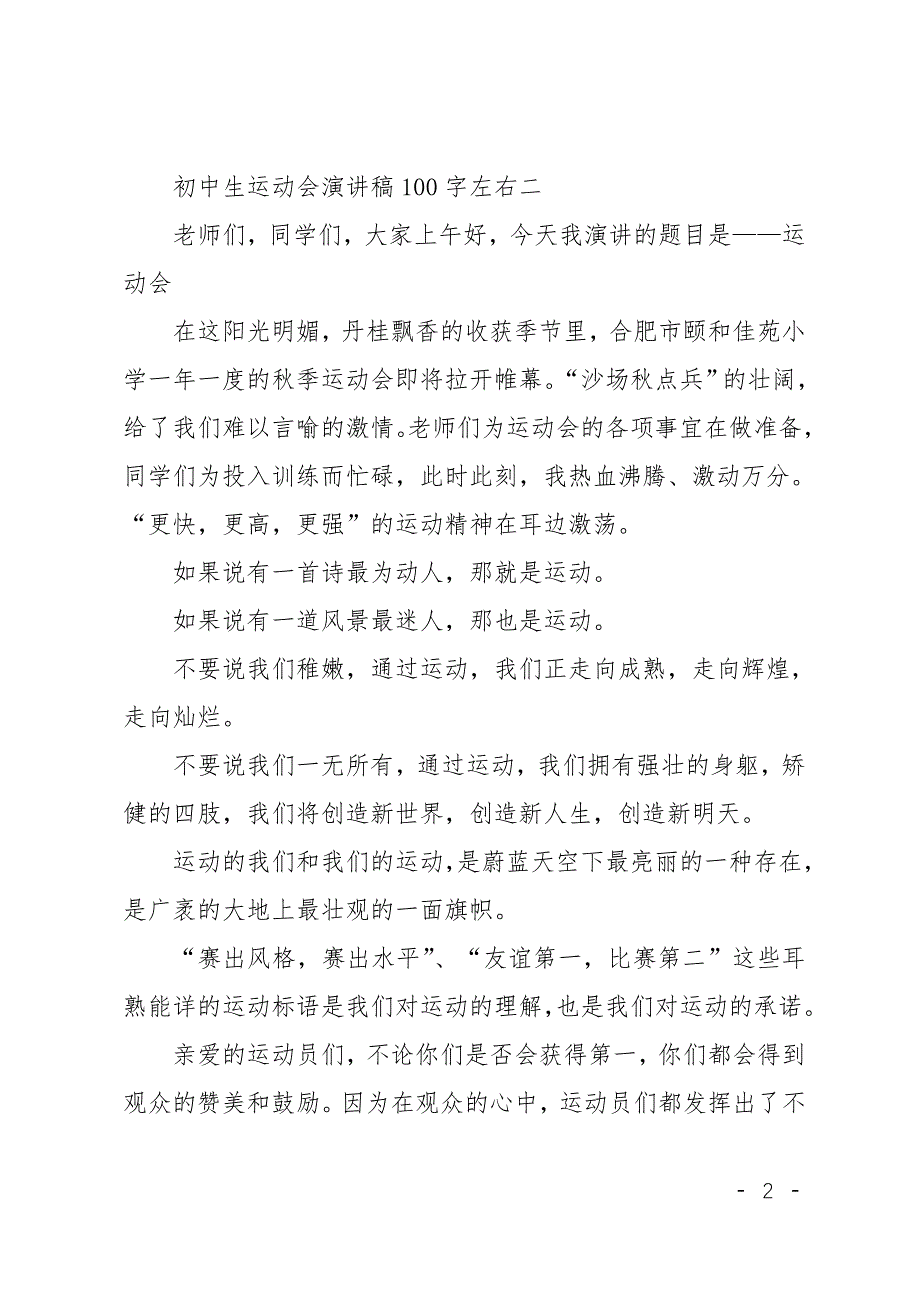 初中生运动会演讲稿100字左右二
老师们，同学们，大家上午好，今天我演讲的题目是——运
动会
在这阳光明媚，丹桂飘香的收获季节里，合肥市颐和佳苑小
学一年一度的秋季运动会即将拉开帷幕。“沙场秋点兵”的壮阔，
给了我们难以言喻的激情。老师们为运动会的各项事宜在做准备，
同学们为投入训练而忙碌，此时此刻，我热血沸腾、激动万分。
“更快，更高，更强”的运动精神在耳边激荡。
如果说有一首诗最为动人，那就是运动。
如果说有一道风景最迷人，那也是运动。
不要说我们稚嫩，通过运动，我们正走向成熟，走向辉煌，
走向灿烂。
不要说我们一无所有，通过运动，我们拥有强壮的身躯，矫
健的四肢，我们将创造新世界，创造新人生，创造新明天。
运动的我们和我们的运动，是蔚蓝天空下最亮丽的一种存在，
是广袤的大地上最壮观的一面旗帜。
“赛出风格，赛出水平”、“友谊第一，比赛第二”这些耳
熟能详的运动标语是我们对运动的理解，也是我们对运动的承诺。
亲爱的运动员们，不论你们是否会获得第一，你们都会得到
观众的赞美和鼓励。因为在观众的心中，运动员们都发挥出了不
- 2 -